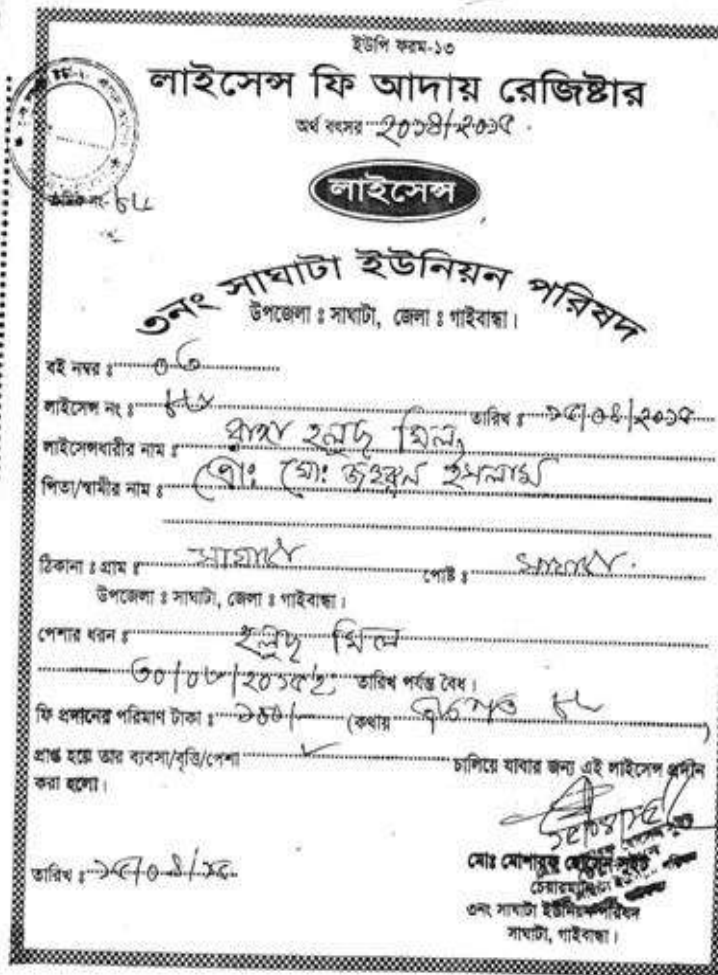 ইউপি ফরম-১৩
লাইসেন্স ফি আদায় রেজিষ্টার
অর্থ বৎসর ২০১৪/২০১৫
লাইসেন্স
ক্রমিক নং-
৩নং সাঘাটা ইউনিয়ন পরিষদ
উপজেলা ঃ সাঘাটা, জেলা ঃ গাইবান্ধা।
বই নম্বর ঃ ০৩
লাইসেন্স নং ঃ তারিখ ঃ ১৫/০৪/২০১৫
লাইসেন্সধারীর নাম ঃ হলুদ মিল,
পিতা/স্বামীর নাম ঃ প্রোঃ মোঃ জহুরুল ইসলাম
ঠিকানা ঃ গ্রাম ঃ সাঘাটা পোষ্ট ঃ সাঘাটা
উপজেলা ঃ সাঘাটা, জেলা ঃ গাইবান্ধা।
পেশার ধরন ঃ হলুদ মিল
তারিখ পর্যন্ত বৈধ।
ফি প্রদানের পরিমাণ টাকা ঃ (কথায় )
প্রাপ্ত হয়ে তার ব্যবসা/বৃত্তি/পেশা চালিয়ে যাবার জন্য এই লাইসেন্স প্রদান
করা হলো।
তারিখ ঃ ১৫/০৪/১৫
মোঃ মোশারফ হোসেন সুইট
চেয়ারম্যান
৩নং সাঘাটা ইউনিয়ন পরিষদ
সাঘাটা, গাইবান্ধা।